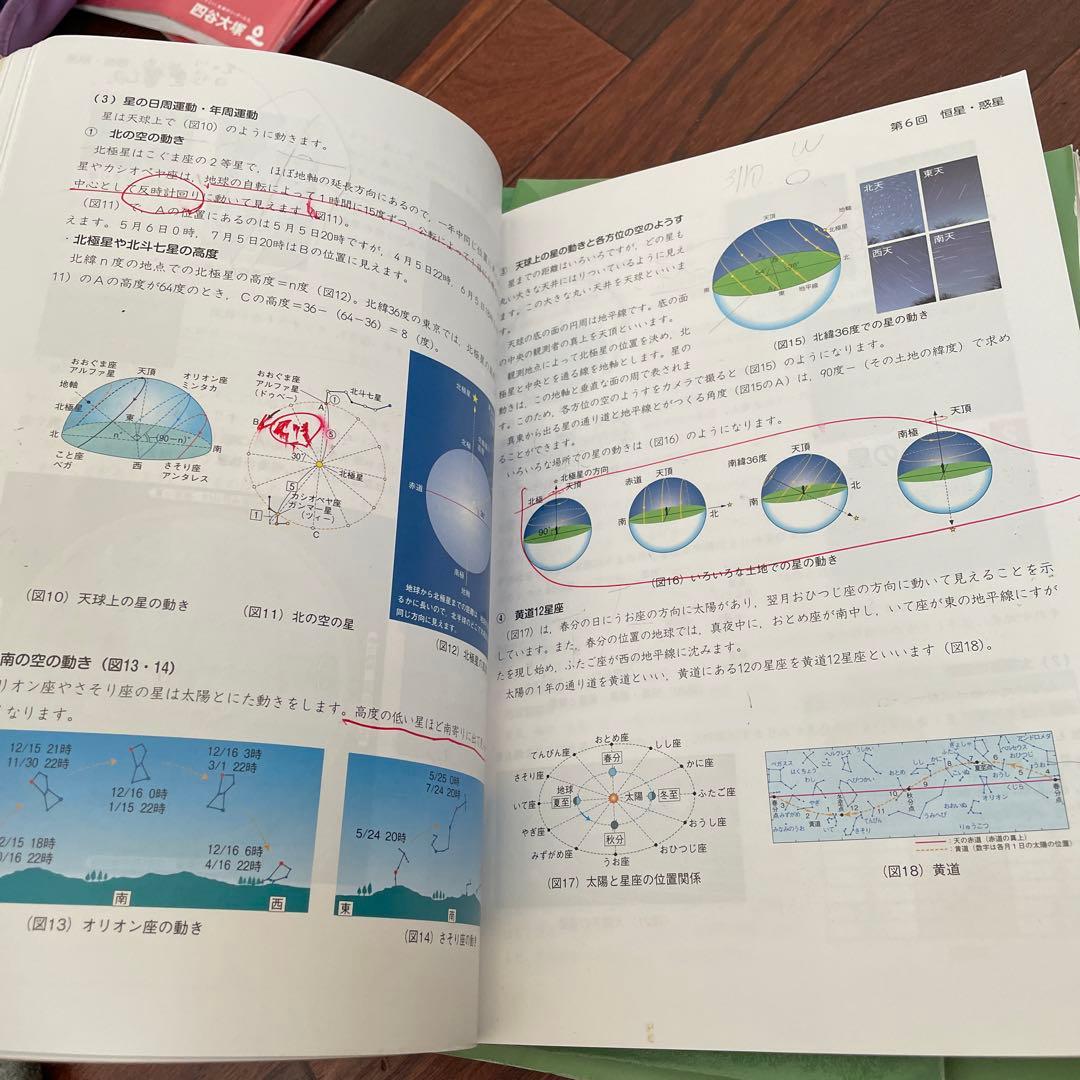 四谷大塚
(3) 星の日周運動・年周運動
星は天球上で(図10)のように動きます。
① 北の空の動き
北極星はこぐま座の2等星で,ほぼ地軸の延長方向にあるので,一年中同じ位置に
星やカシオペヤ座は,地球の自転によって1時間に15度ずつ,公転によって1
中心として反時計回りに動いて見えます(図11)。
(図11)で,Aの位置にあるのは5月5日20時ですが,4月5日22時,6月5日
えます。5月6日0時,7月5日20時はBの位置に見えます。
・北極星や北斗七星の高度
北緯n度の地点での北極星の高度=n度(図12)。北緯36度の東京では,北極星の
11)のAの高度が64度のとき,Cの高度=36-(64-36)=8(度)。
おおぐま座
アルファ星
天頂
オリオン座
ミンタカ
地軸
北極星
東
北
n°
(90-n)°
南
こと座
ベガ
西
さそり座
アンタレス
(図10) 天球上の星の動き
おおぐま座
アルファ星
(ドゥベー)
北斗七星
①
A
B
⑤
30°
北極星
5
カシオペヤ座
ガンマー星
(ツィー)
1
C
(図11) 北の空の星
北極星
北極
赤道
南極
地軸
地球から北極星までの距離は,
るかに長いので,北半球のどこで
同じ方向に見えます。
(図12) 北極星の
南の空の動き(図13・14)
リオン座やさそり座の星は太陽とにた動きをします。高度の低い星ほど南寄りに出て
なります。
12/15 21時
11/30 22時
12/16 0時
1/15 22時
12/16 3時
3/1 22時
2/15 18時
/16 22時
12/16 6時
4/16 22時
南
西
(図13) オリオン座の動き
5/25 0時
7/24 20時
5/24 20時
東
南
(図14) さそり座の動き
第6回 恒星・惑星
③ 天球上の星の動きと各方位の空のようす
星までの距離はいろいろですが,どの星も
丸い大きな天井にはりついているように見え
ます。この大きな丸い天井を天球といいま
す。
天球の底の面の円周は地平線です。底の面
の中央の観測者の真上を天頂といいます。
観測地点によって北極星の位置を決め,北
極星と中央とを通る線を地軸とします。星の
動きは,この地軸と垂直な面の周で表されま
す。このため,各方位の空のようすをカメラで撮ると(図15)のようになります。
真東から出る星の通り道と地平線とがつくる角度(図15のA)は,90度-(その土地の緯度)で求め
ることができます。
いろいろな場所での星の動きは(図16)のようになります。
天頂
地軸
北極星
北
南
東
地平線
北天
東天
西天
南天
(図15) 北緯36度での星の動き
北極星の方向
北極
天頂
90°
赤道
天頂
南
北
南緯36度
天頂
南
北
南極
天頂
(図16) いろいろな土地での星の動き
④ 黄道12星座
(図17)は,春分の日にうお座の方向に太陽があり,翌月おひつじ座の方向に動いて見えることを示
しています。また,春分の位置の地球では,真夜中に,おとめ座が南中し,いて座が東の地平線にすが
たを現し始め,ふたご座が西の地平線に沈みます。
太陽の1年の通り道を黄道といい,黄道にある12の星座を黄道12星座といいます(図18)。
おとめ座
てんびん座
しし座
さそり座
かに座
いて座
ふたご座
やぎ座
おうし座
みずがめ座
おひつじ座
うお座
春分
地球
夏至
太陽
冬至
秋分
(図17) 太陽と星座の位置関係
ペガスス
はくちょう
わし
こと
ヘルクレス
へびつかい
うしかい
おとめ
しし
こいぬ
ぎょしゃ
ふたご
夏至点
ペルセウス
おひつじ
おうし
アンドロメダ
うお
くじら
オリオン
おおいぬ
うみへび
りゅうこつ
春分点
みずがめ
みなみのうお
やぎ
冬至点
いて
さそり
てんびん
秋分点
黄道
春分点
:天の赤道(赤道の真上)
:黄道(数字は各月1日の太陽の位置)
(図18) 黄道